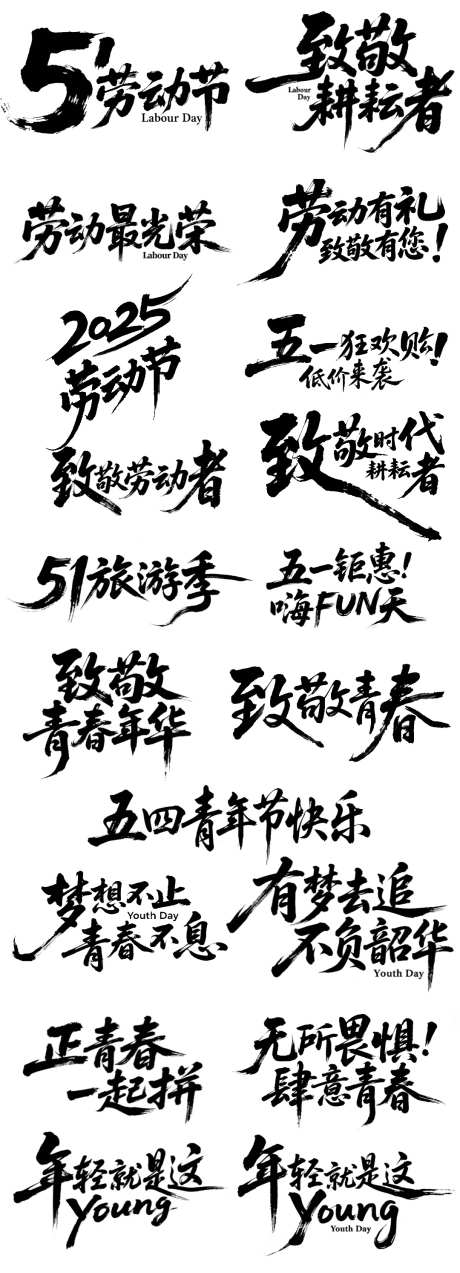 51劳动节
Labour Day
致敬
Labour
Day
耕耘者
劳动最光荣
Labour Day
劳动有礼
致敬有您！
2025
劳动节
五一狂欢购！
低价来袭
致敬劳动者
致敬时代
耕耘者
51旅游季
五一钜惠！
嗨FUN天
致敬
青春年华
致敬青春
五四青年节快乐
梦想不止
Youth Day
青春不息
有梦去追
不负韶华
Youth Day
正青春
一起拼
无所畏惧！
肆意青春
年轻就是这
young
年轻就是这
young
Youth Day